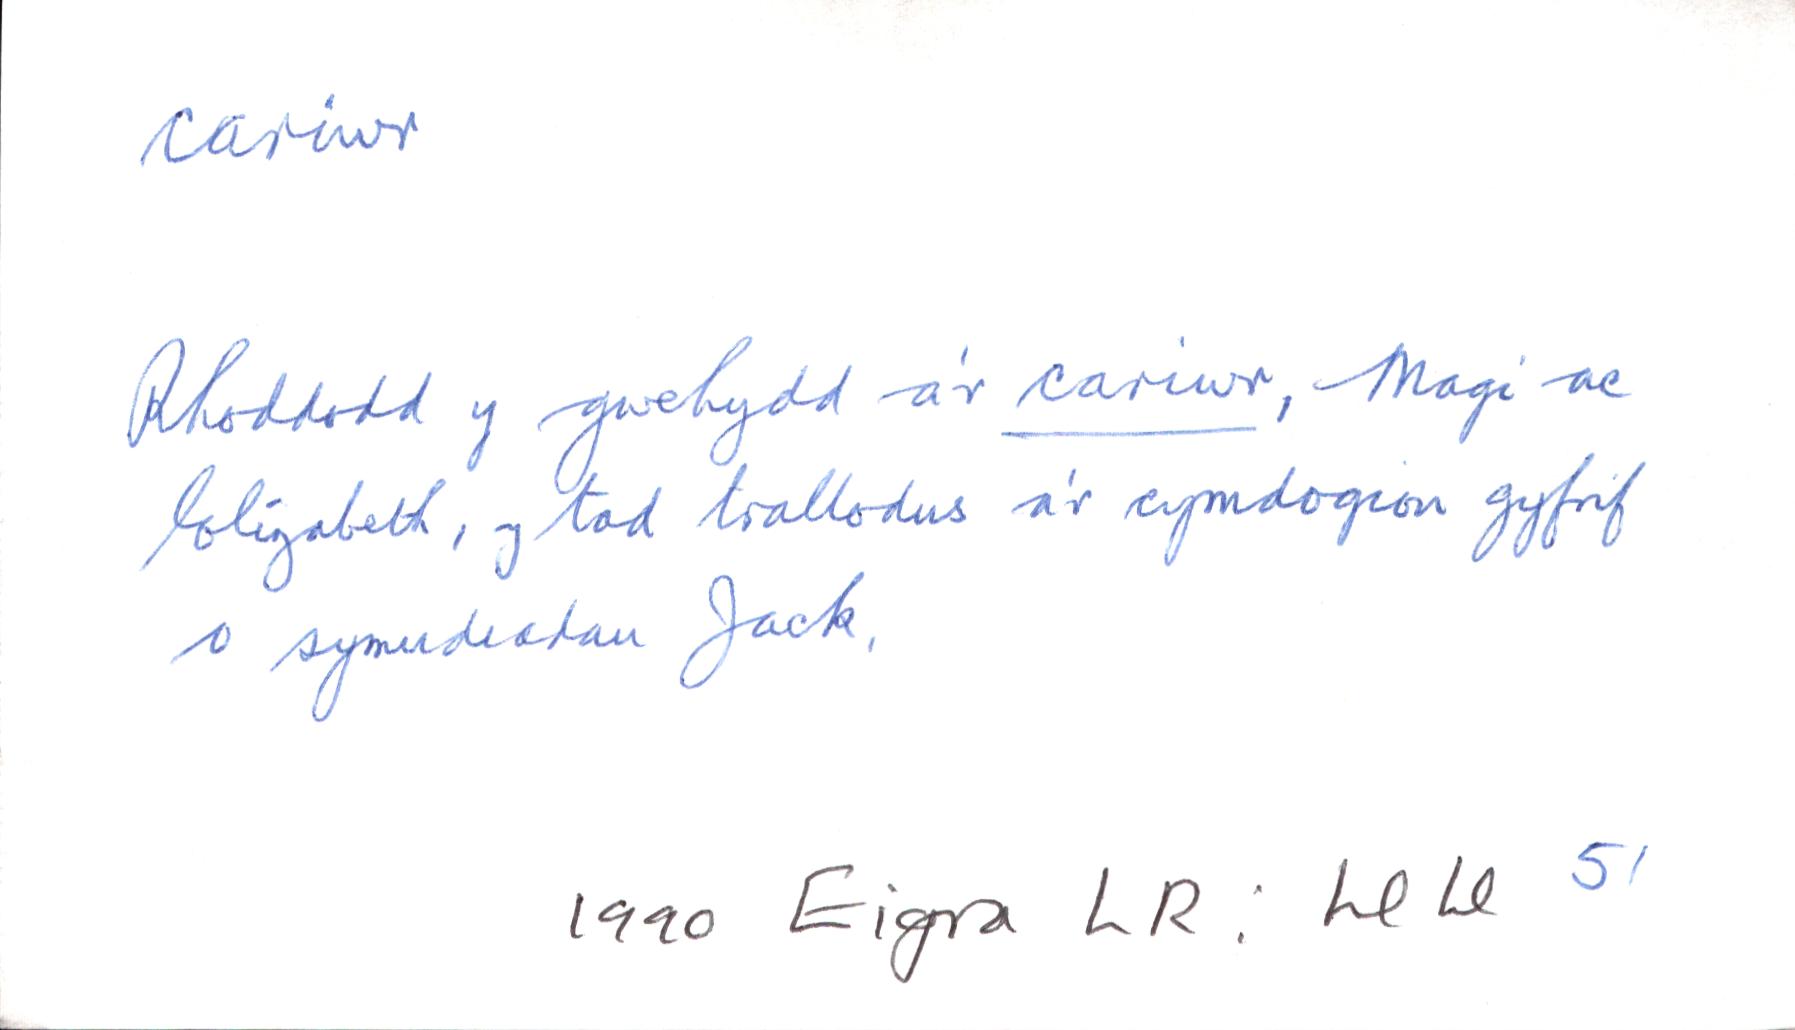 cariwr
Rhoddodd y gwehydd a'r cariwr, Magi ac
Elizabeth, y tad trallodus a'r cymdogion gyfrif
o symudiadau Jack.
1990 Eigra LR: Ll Ll 51